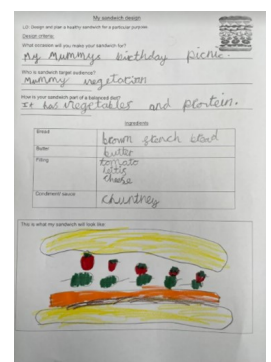 My sandwich design
LO: Design and plan a healthy sandwich for a particular purpose
Design criteria:
What occasion will you make your sandwich for?
My Mummys birthday picnic.
Who is sandwich target audience?
Mummy vegetarian
How is your sandwich part of a balanced diet?
It has vegetables and protein.
Ingredients
Bread
brown french bread
Butter
butter
Filling
tomato
cheese
Condiment/ sauce
chuntney
This is what my sandwich will look like: